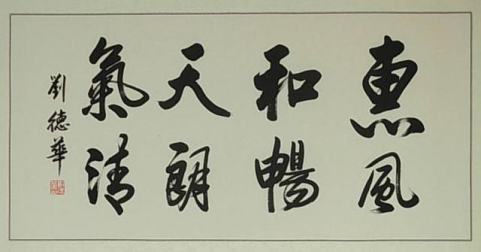 惠風
和暢
天朗
氣清
劉德華